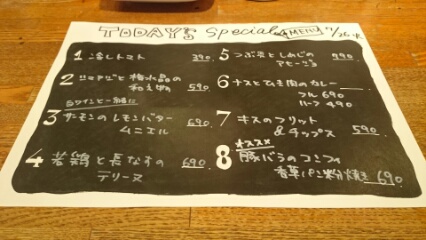 TODAY'S Special MENU 7/26 火
1 冷しトマト 390
2 ツマアゾと梅水晶の
和え物 590
白ワインと一緒に
3 サーモンのレモンバター
ムニエル 690
4 若鶏と長なすの
テリーヌ 690
5 つぶ貝としめじの
アヒージョ 590
6 ナスとひき肉のカレー
フル 690
ハーフ 490
7 キスのフリット
& チップス 590
オススメ
8 豚バラのコンフィ
香草パン粉焼き 690